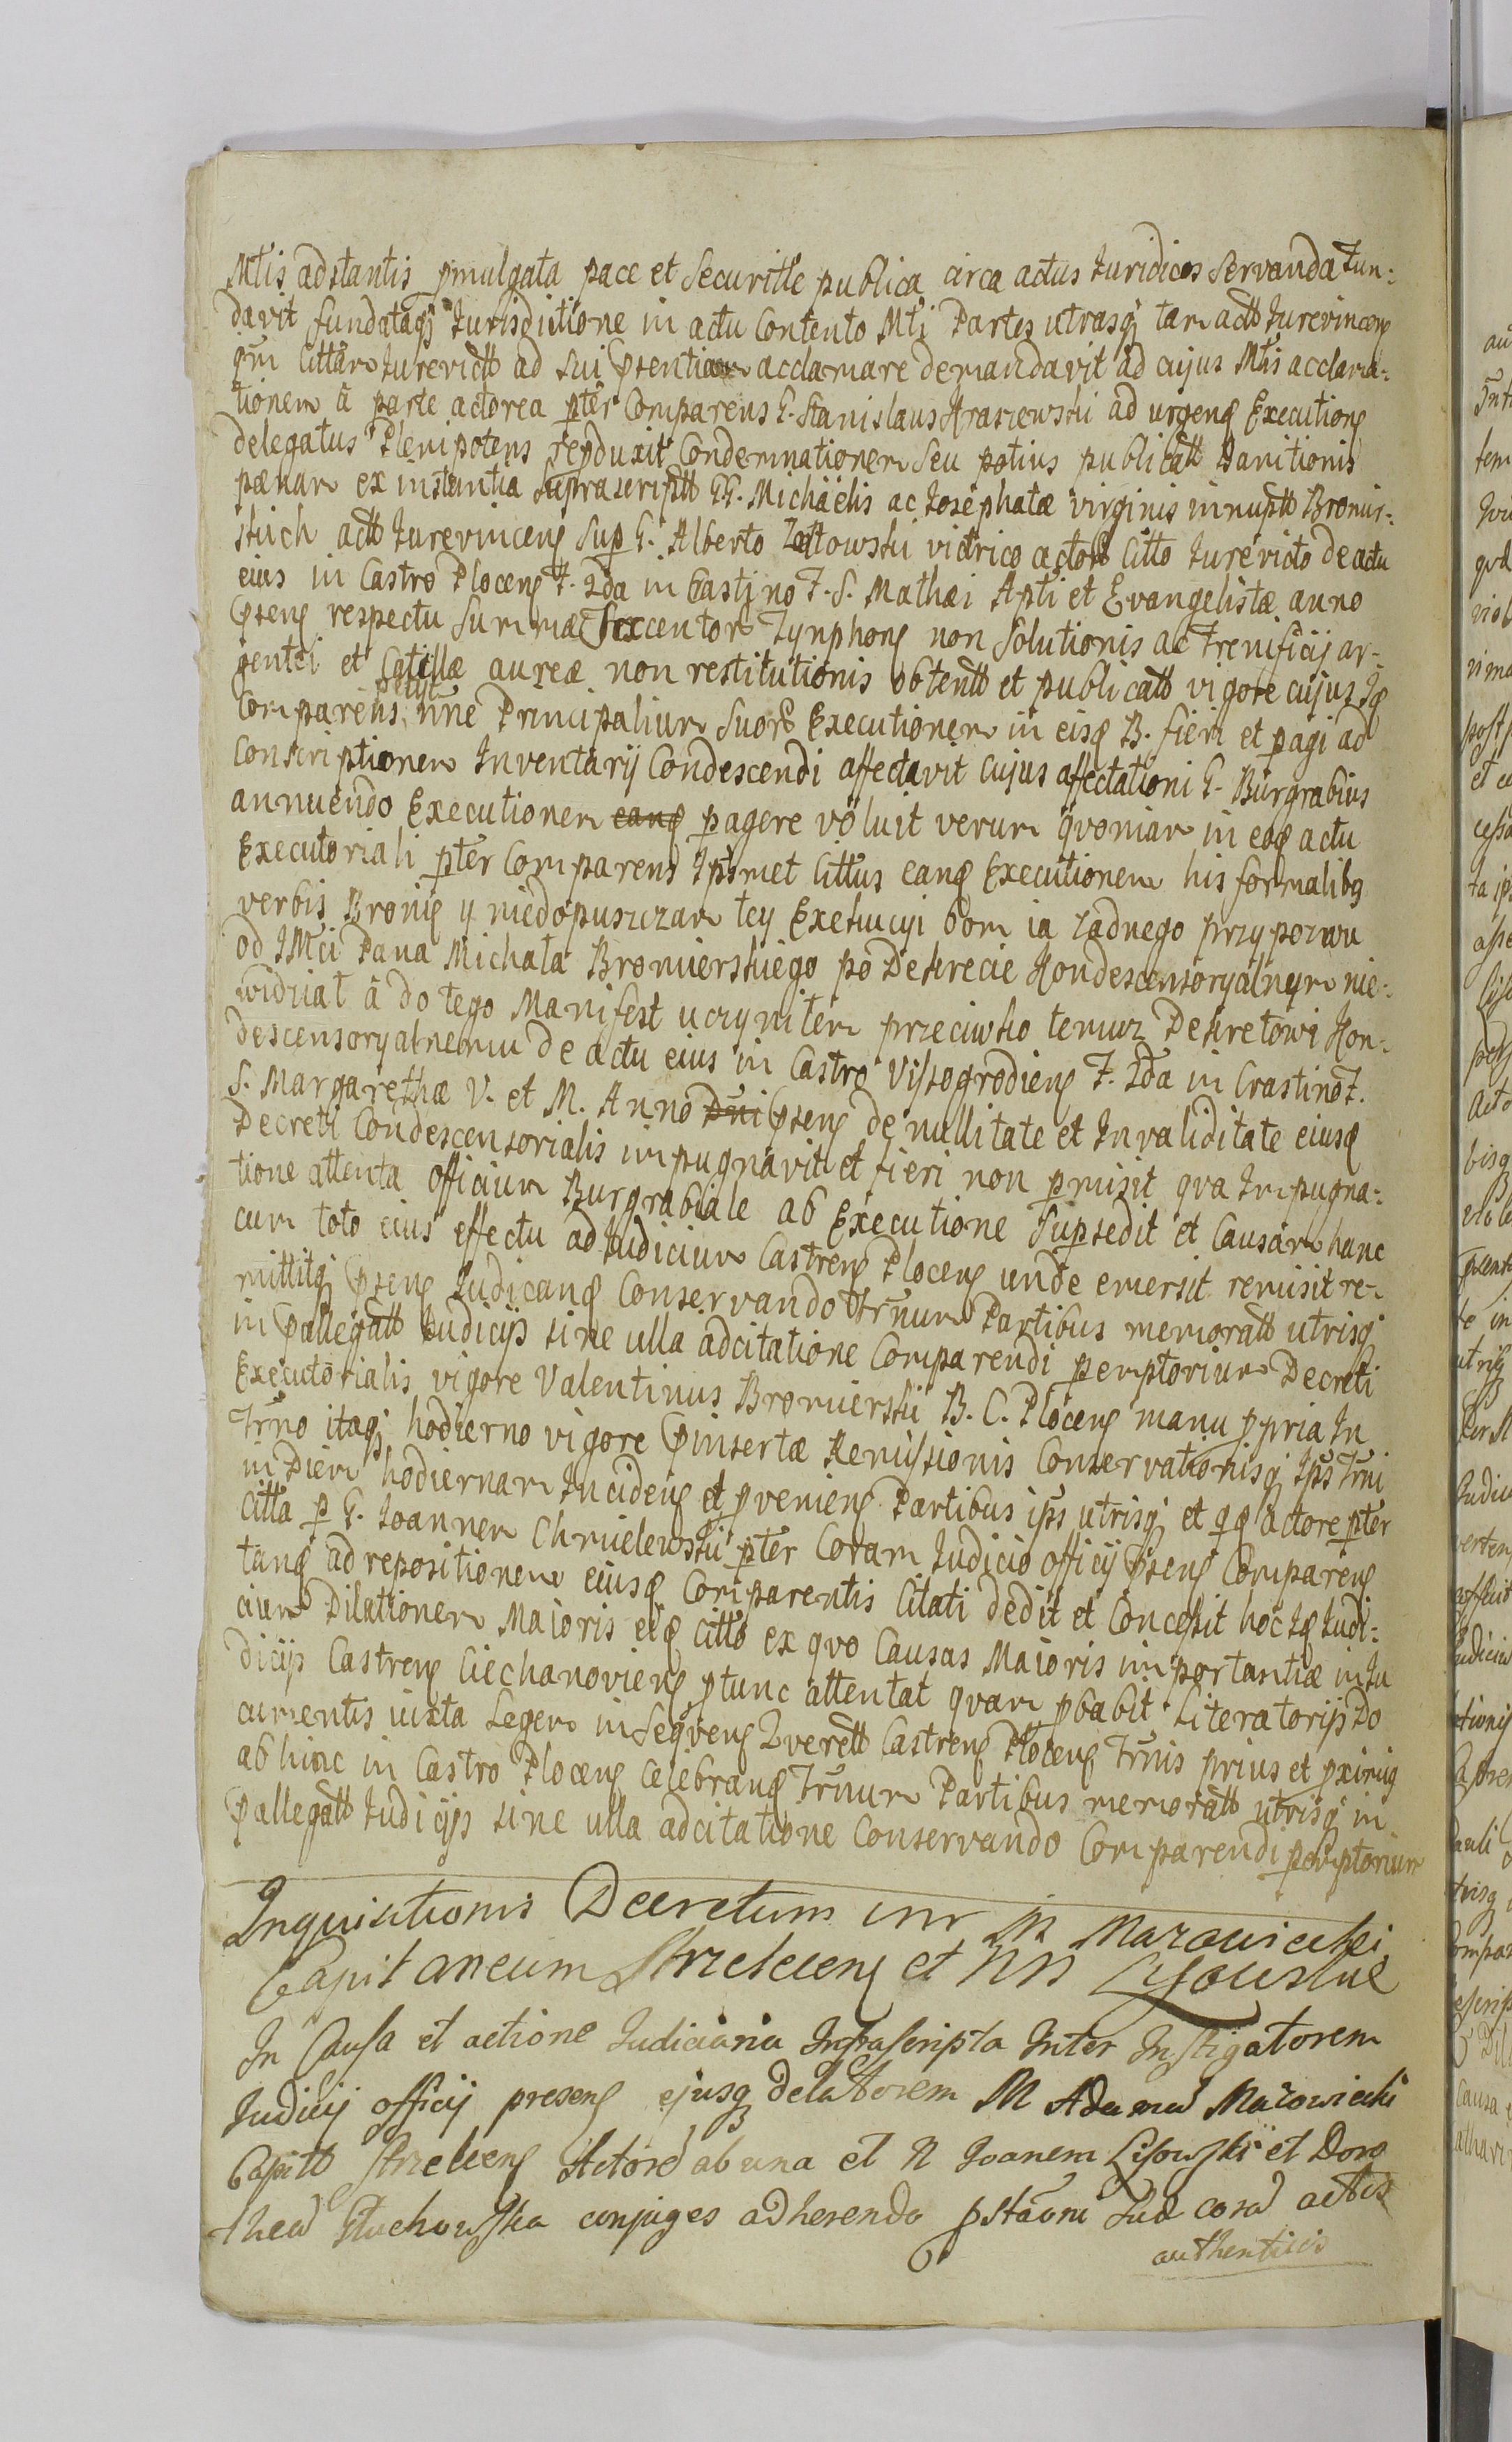 Mtis adstantis pmulgata pace et Securitte publica circa actus Juridicos Servanda Jun:
davit fundataq Jurisdictione in actu Contento Mti Partes utrasq tam actt Jurevincens
qm Cittam Jurevictt ad Sui psentiam acclamare demandavit ad cujus Mtis acclama:
tionem á parte actorea pter Comparens G. Stanislaus Araszewski ad urgens Executions
delegatus Plenipotens Condemnationem Seu potius publicatt Banitionis
pænam ex instantia Suprascriptt GG. Michaëlis ac Josephatæ virginis innuptt Bromir:
skich actt Jurevincens Sup G. Alberto vitrico actor Citto Jurevicto de actu
eius in Castro Plocens F. 2da in Castino F. S. Mathæi Apti et Evangelistæ anno
psens respectu Summæ Sexcentor Tynphons non Solutionis ac Frenificij ar-
gentei et Catellæ aureæ non restitutionis obtentt et publicatt vigore cujus Id
Comparens petijt nne Principalium Suor Executionem in eisd B. fieri et pagi ad
Conscriptionem Inventarij Condescendi affectavit cujus affectationi G. Burgrabius
annuendo Executionem eand pagere voluit verum qvoniam in eod actu
Executoriali pter Comparens Ipsmet Cittus eand Executionem his formalibq
verbis Bronię y niedopuszczam tey Exekucyi bom ia zadnego przypozwu
od JMci Pana Michała Bromierskiego po Dekrecie Kondescensoryalnym nie-
widział á do tego Manifest uczyniłem przeciwko temuz Dekretowi Kon-
descensoryalnemu de actu eius in Castro Vissogrodiens F. 2da in Crastino F.
S. Margarethæ V. et M. Anno Dni psens de nullitate et Invaliditate eiusd
Decreti Condescensorialis impugnavit et fieri non pmisit qva Impugna:
tione attenta officium Burgrabiale ab Executione Supsedit et Causam hanc
cum toto eius effectu ad Judicium Castrens Plocens unde emersit remisit re-
mittitq psens Judicand Conservando Trnum Partibus memoratt utrisq
in pallegatt Judicijs sine ulla adcitatione Comparendi pemptorium Decreti
Executorialis vigore Valentinus Bromierski B. C. Plocens manu ppria In
Trno itaq hodierno vigore pinsertæ Remissionis Conservationisq Ips Trni
in Diem hodiernam Incidens et pveniens Partibus ips utrisq et qd actore pter
Citta p G. Joannem Chmielewski pter Coram Judicio officij psens Comparens
tand ad repositionem eiusd Comparentis Citati dedit et Concessit hoc Id Judi:
cium Dilationem Maioris eid Citto ex qvo Causas Maioris importantiæ in Ju
dicijs Castrens Ciechanoviens ptunc attentat qvam pbabit Literatorijs Do
cumentis iuxta Legem in Seqvens Qverett Castrens Plocens Trnis prius et pximis
abhinc in Castro Plocens Celebrand Trnum Partibus memoratt utrisq in
pallegatt Judicijs sine ulla adcitatione Conservando Comparendi pemptorium
Inquisitionis Decretum inr M Mazowiecki
Capitaneum Strzelecens et NN Lisowskie
In Causa et actione Iudiciaria Infrascripta Inter Instigatorem
Iudicij officij presens ejusq delatorem M Adamu Mazowiecki
Capitt Strzelcens Actore ab una et N Joanem Lisowski et Doro
thea conjuges adherendo pstaoni Sue cora actis
authenticis